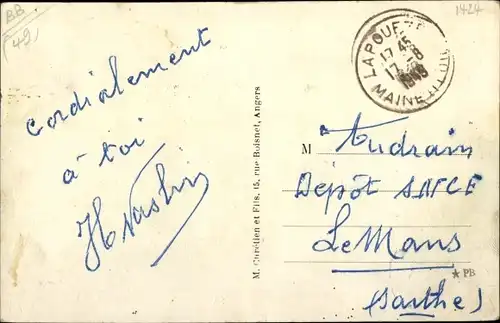 BB
(49)
1424
cordialement
à toi
M. Chrétien et Fils, 15, rue Boisnet, Angers
LAPOUEZE
17 45
17 -8
1949
MAINE
M Audrain
Dépôt SNCF
Le Mans
★ PB
(Sarthe)